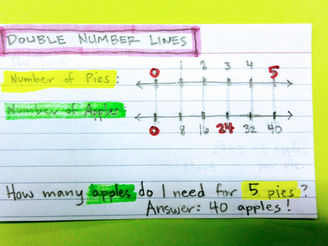 DOUBLE NUMBER LINES
Number of Pies:
0 1 2 3 4 5
Number of Apples
0 8 16 24 32 40
How many apples do I need for 5 pies?
Answer: 40 apples!